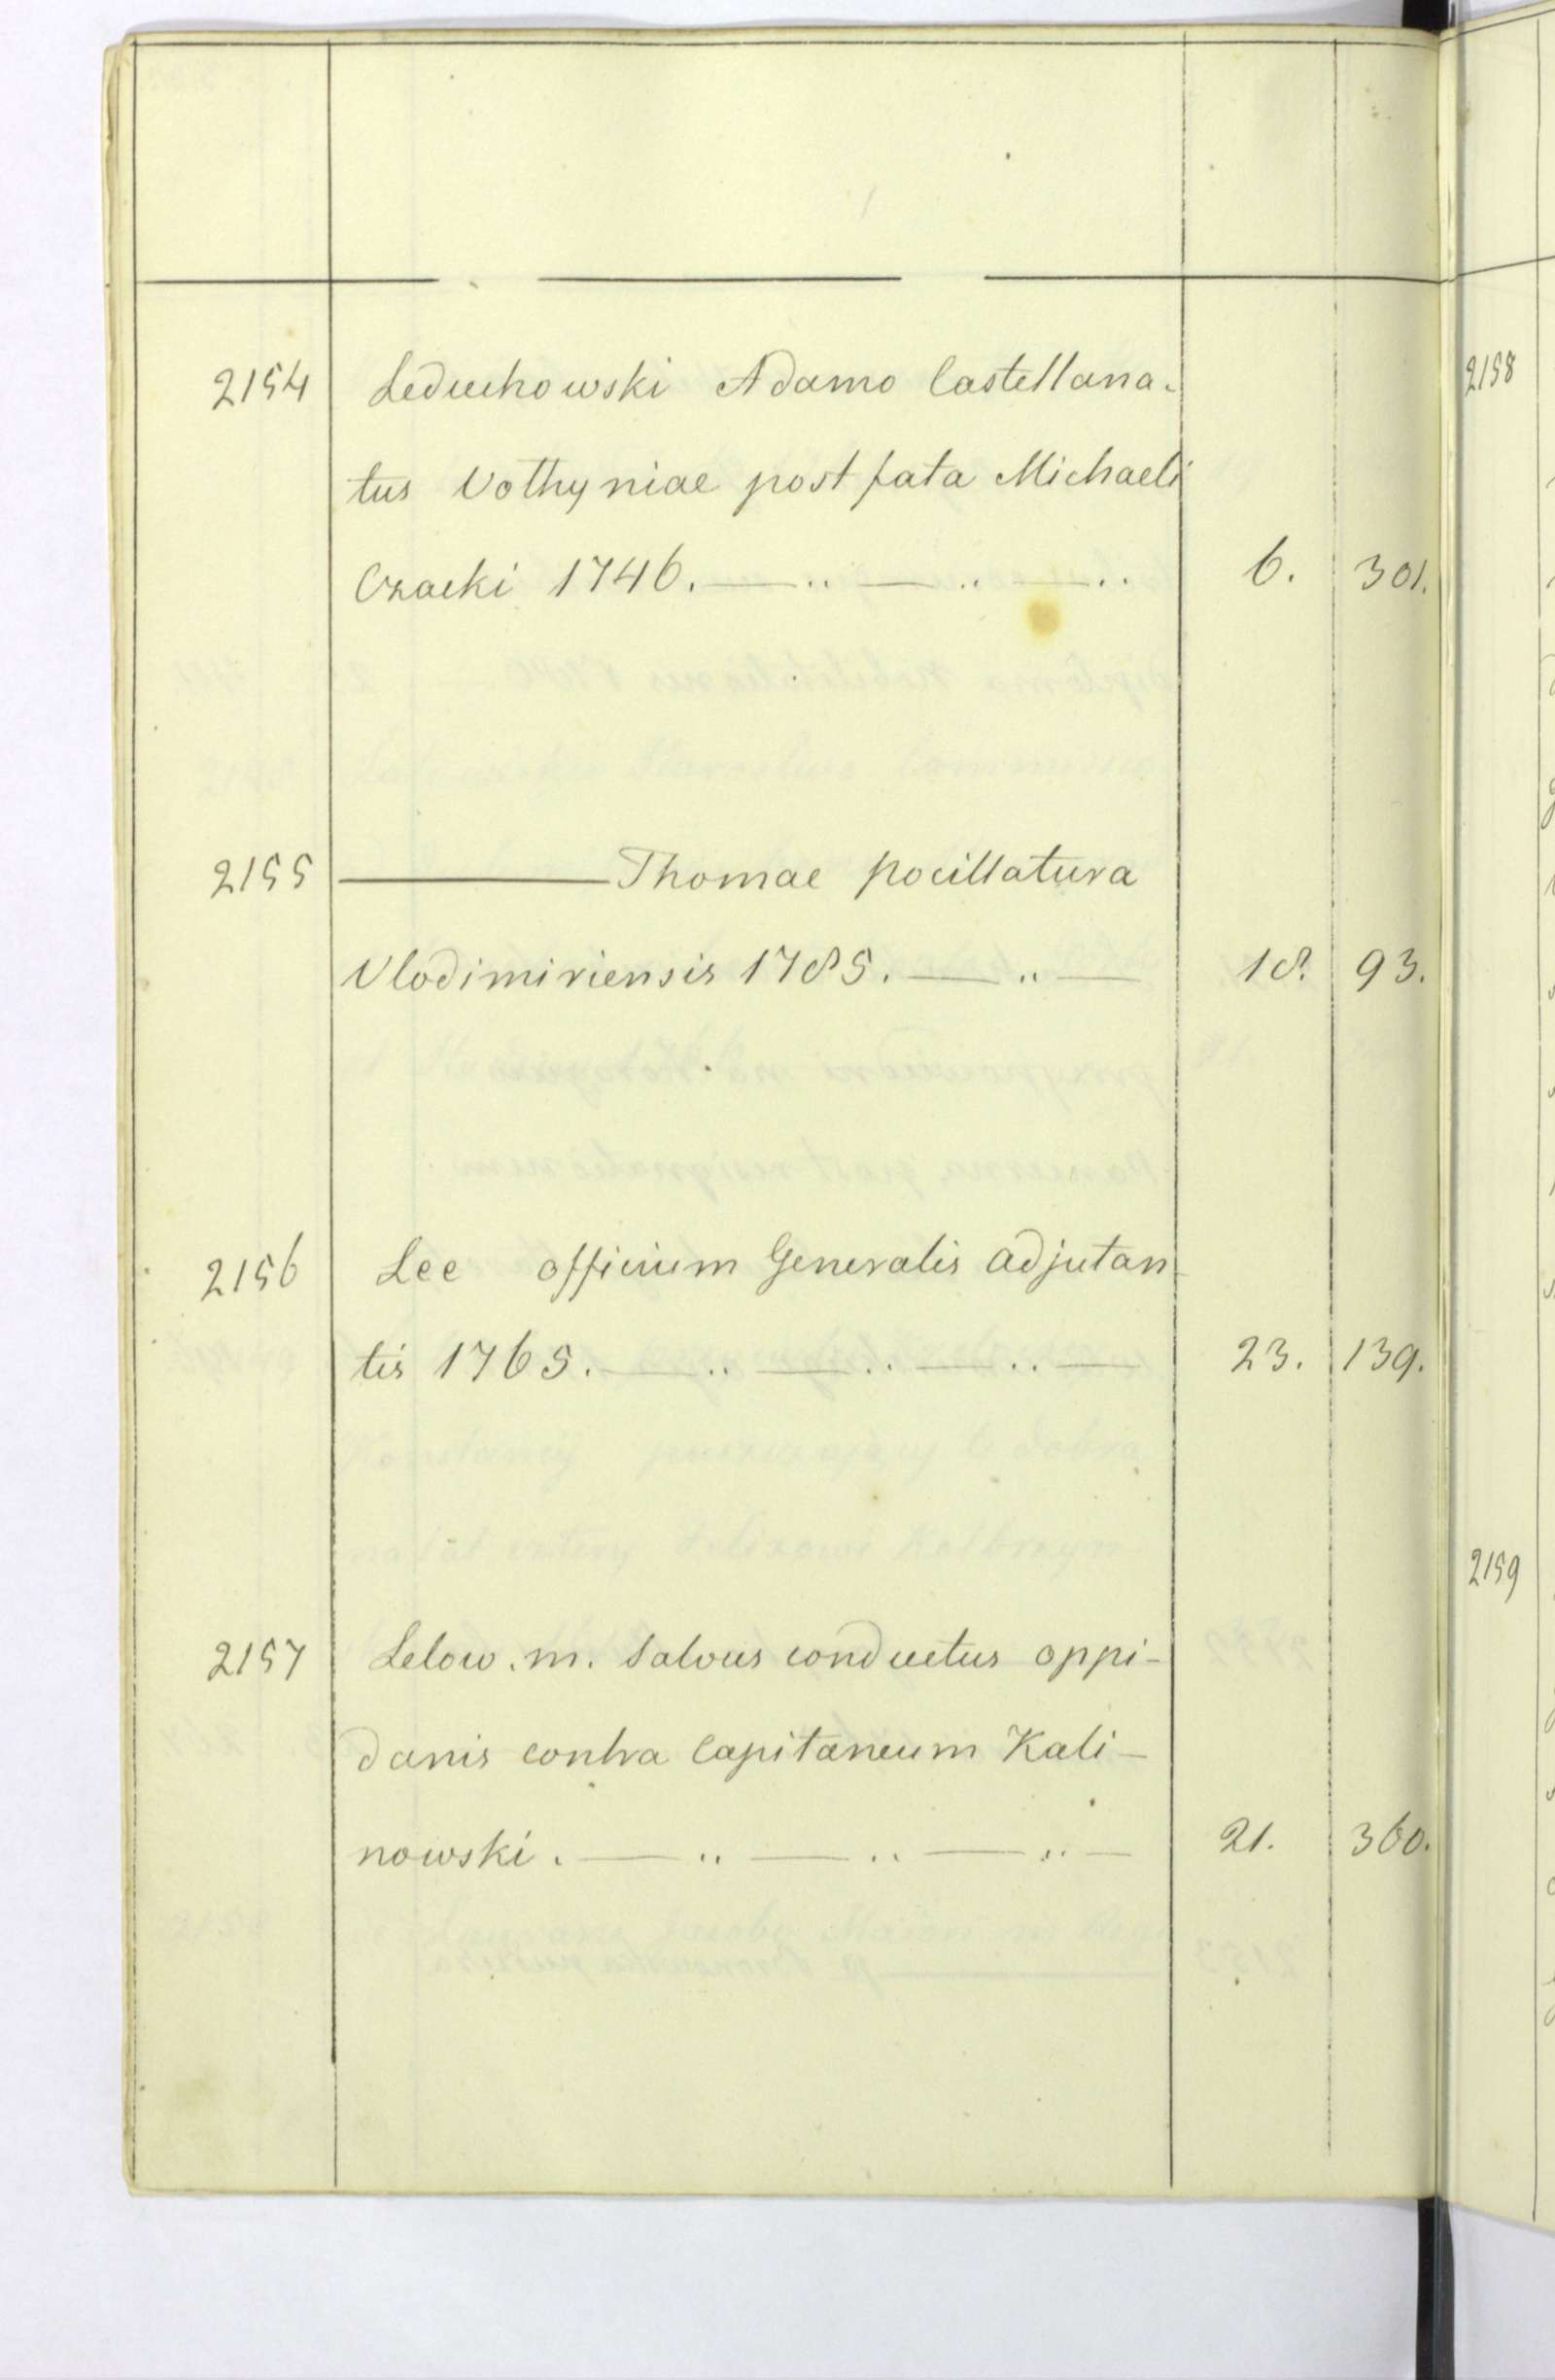 2154 Leduchowski Adamo Castellana-
tus Vothyniae post fata Michaeli
Czacki 1746. — .. — .. — .. 6. 301.
2155 ——— Thomae pocillatura
Vlodimiriensis 1785. — .. — 18. 93.
2156 Lee officium Generalis adjutan-
tis 1765. — .. — .. — .. — 23. 139.
2157 Lelow. m. Salvus conductus oppi-
danis contra Capitaneum Kali-
nowski. — .. — .. — .. — 21. 360.
2158
2159